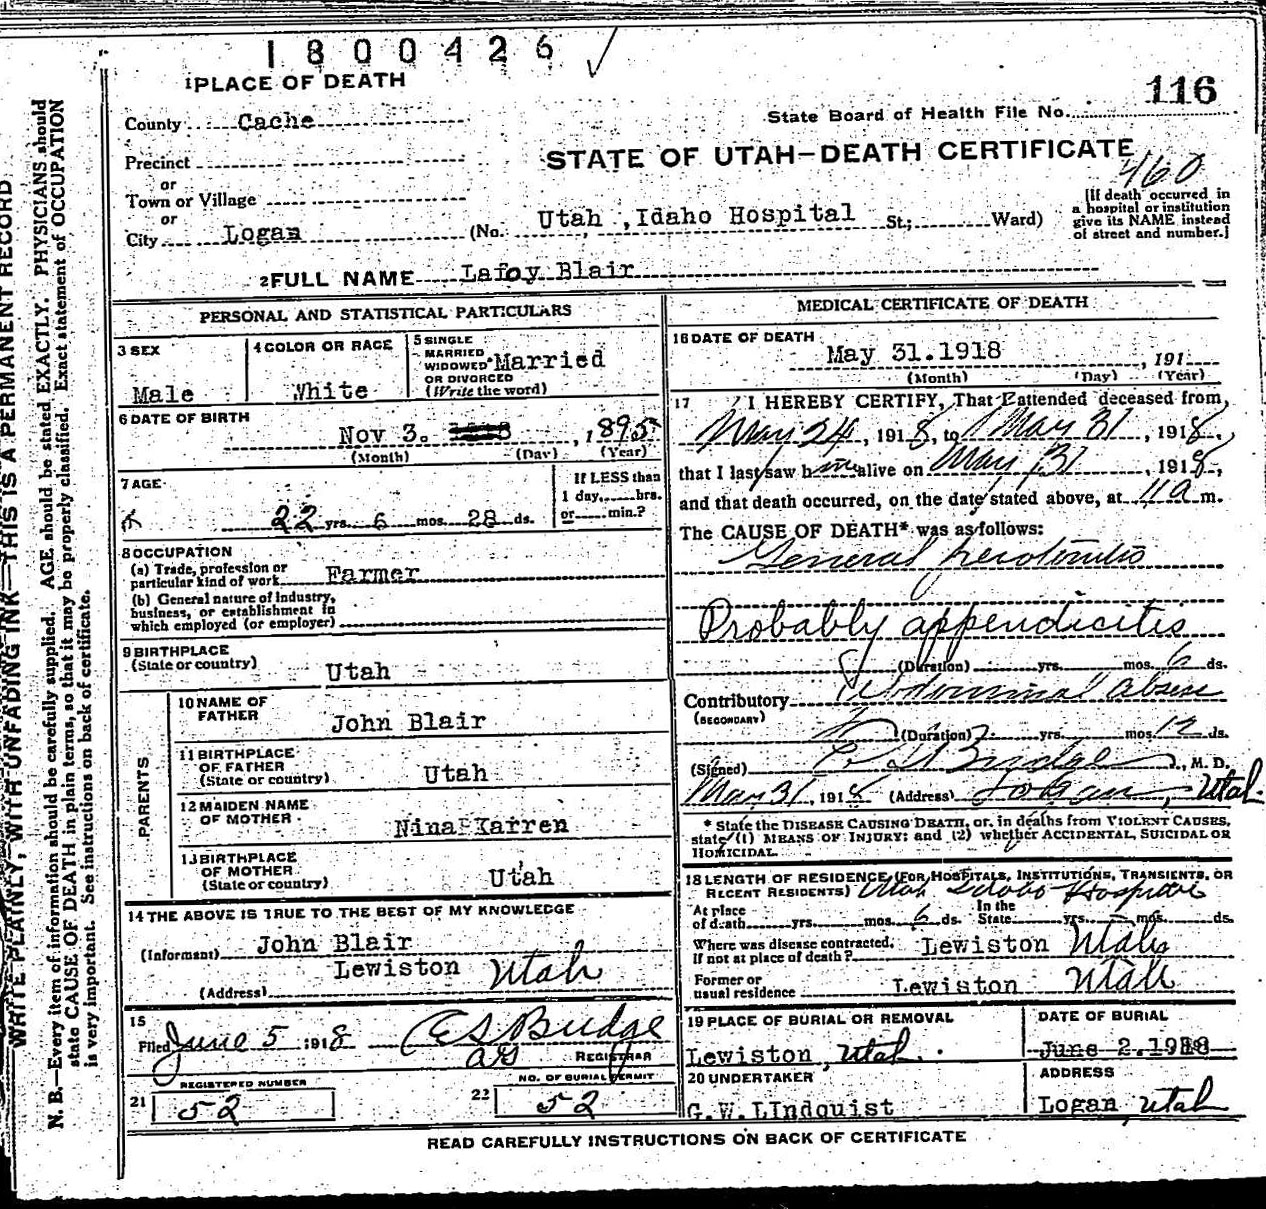 1800426 ✓
1 PLACE OF DEATH
116
State Board of Health File No.
County Cache
STATE OF UTAH—DEATH CERTIFICATE
460
Precinct
or
Town or Village
or
City Logan (No. Utah , Idaho Hospital St.; Ward)
[If death occurred in
a hospital or institution
give its NAME instead
of street and number.]
2 FULL NAME Lafoy Blair
PERSONAL AND STATISTICAL PARTICULARS
3 SEX
Male
4 COLOR OR RACE
White
5 SINGLE
MARRIED
WIDOWED
OR DIVORCED
(Write the word)
Married
6 DATE OF BIRTH
Nov 3. , 1895
(Month) (Day) (Year)
7 AGE
22 yrs. 6 mos. 28 ds.
If LESS than
1 day, hrs.
or min.?
8 OCCUPATION
(a) Trade, profession or
particular kind of work Farmer
(b) General nature of industry,
business, or establishment in
which employed (or employer)
9 BIRTHPLACE
(State or country) Utah
PARENTS
10 NAME OF
FATHER John Blair
11 BIRTHPLACE
OF FATHER
(State or country) Utah
12 MAIDEN NAME
OF MOTHER Nina Karren
13 BIRTHPLACE
OF MOTHER
(State or country) Utah
14 THE ABOVE IS TRUE TO THE BEST OF MY KNOWLEDGE
(Informant) John Blair
Lewiston Utah
(Address)
15
Filed June 5 1918 E S Budge
REGISTRAR
REGISTERED NUMBER
21 52
NO. OF BURIAL PERMIT
22 52
MEDICAL CERTIFICATE OF DEATH
16 DATE OF DEATH
May 31.1918 , 191
(Month) (Day) (Year)
17 I HEREBY CERTIFY, That I attended deceased from,
May 24 , 1918, to May 31 , 1918,
that I last saw him alive on May 31 , 1918,
and that death occurred, on the date stated above, at 11 a m.
The CAUSE OF DEATH* was as follows:
General
Probably appendicitis
(Duration) yrs. mos. 6 ds.
Contributory Abdominal
(SECONDARY)
(Duration) yrs. mos. 12 ds.
(Signed) Budge , M. D.
May 31, 1918 (Address) Logan, Utah
* State the DISEASE CAUSING DEATH, or, in deaths from VIOLENT CAUSES,
state (1) MEANS OF INJURY; and (2) whether ACCIDENTAL, SUICIDAL OR
HOMICIDAL.
18 LENGTH OF RESIDENCE (FOR HOSPITALS, INSTITUTIONS, TRANSIENTS, OR
RECENT RESIDENTS) Utah Idaho Hospital
At place
of death yrs. mos. 6 ds.
In the
State yrs. mos. ds.
Where was disease contracted.
If not at place of death? Lewiston Utah
Former or
usual residence Lewiston Utah
19 PLACE OF BURIAL OR REMOVAL
Lewiston, Utah.
DATE OF BURIAL
June 2.1918
20 UNDERTAKER
G.W. LIndquist
ADDRESS
Logan, Utah
READ CAREFULLY INSTRUCTIONS ON BACK OF CERTIFICATE
WRITE PLAINLY, WITH UNFADING INK—THIS IS A PERMANENT RECORD
N. B.—Every item of information should be carefully supplied. AGE should be stated EXACTLY. PHYSICIANS should
state CAUSE OF DEATH in plain terms, so that it may be properly classified. Exact statement of OCCUPATION
is very important. See instructions on back of certificate.